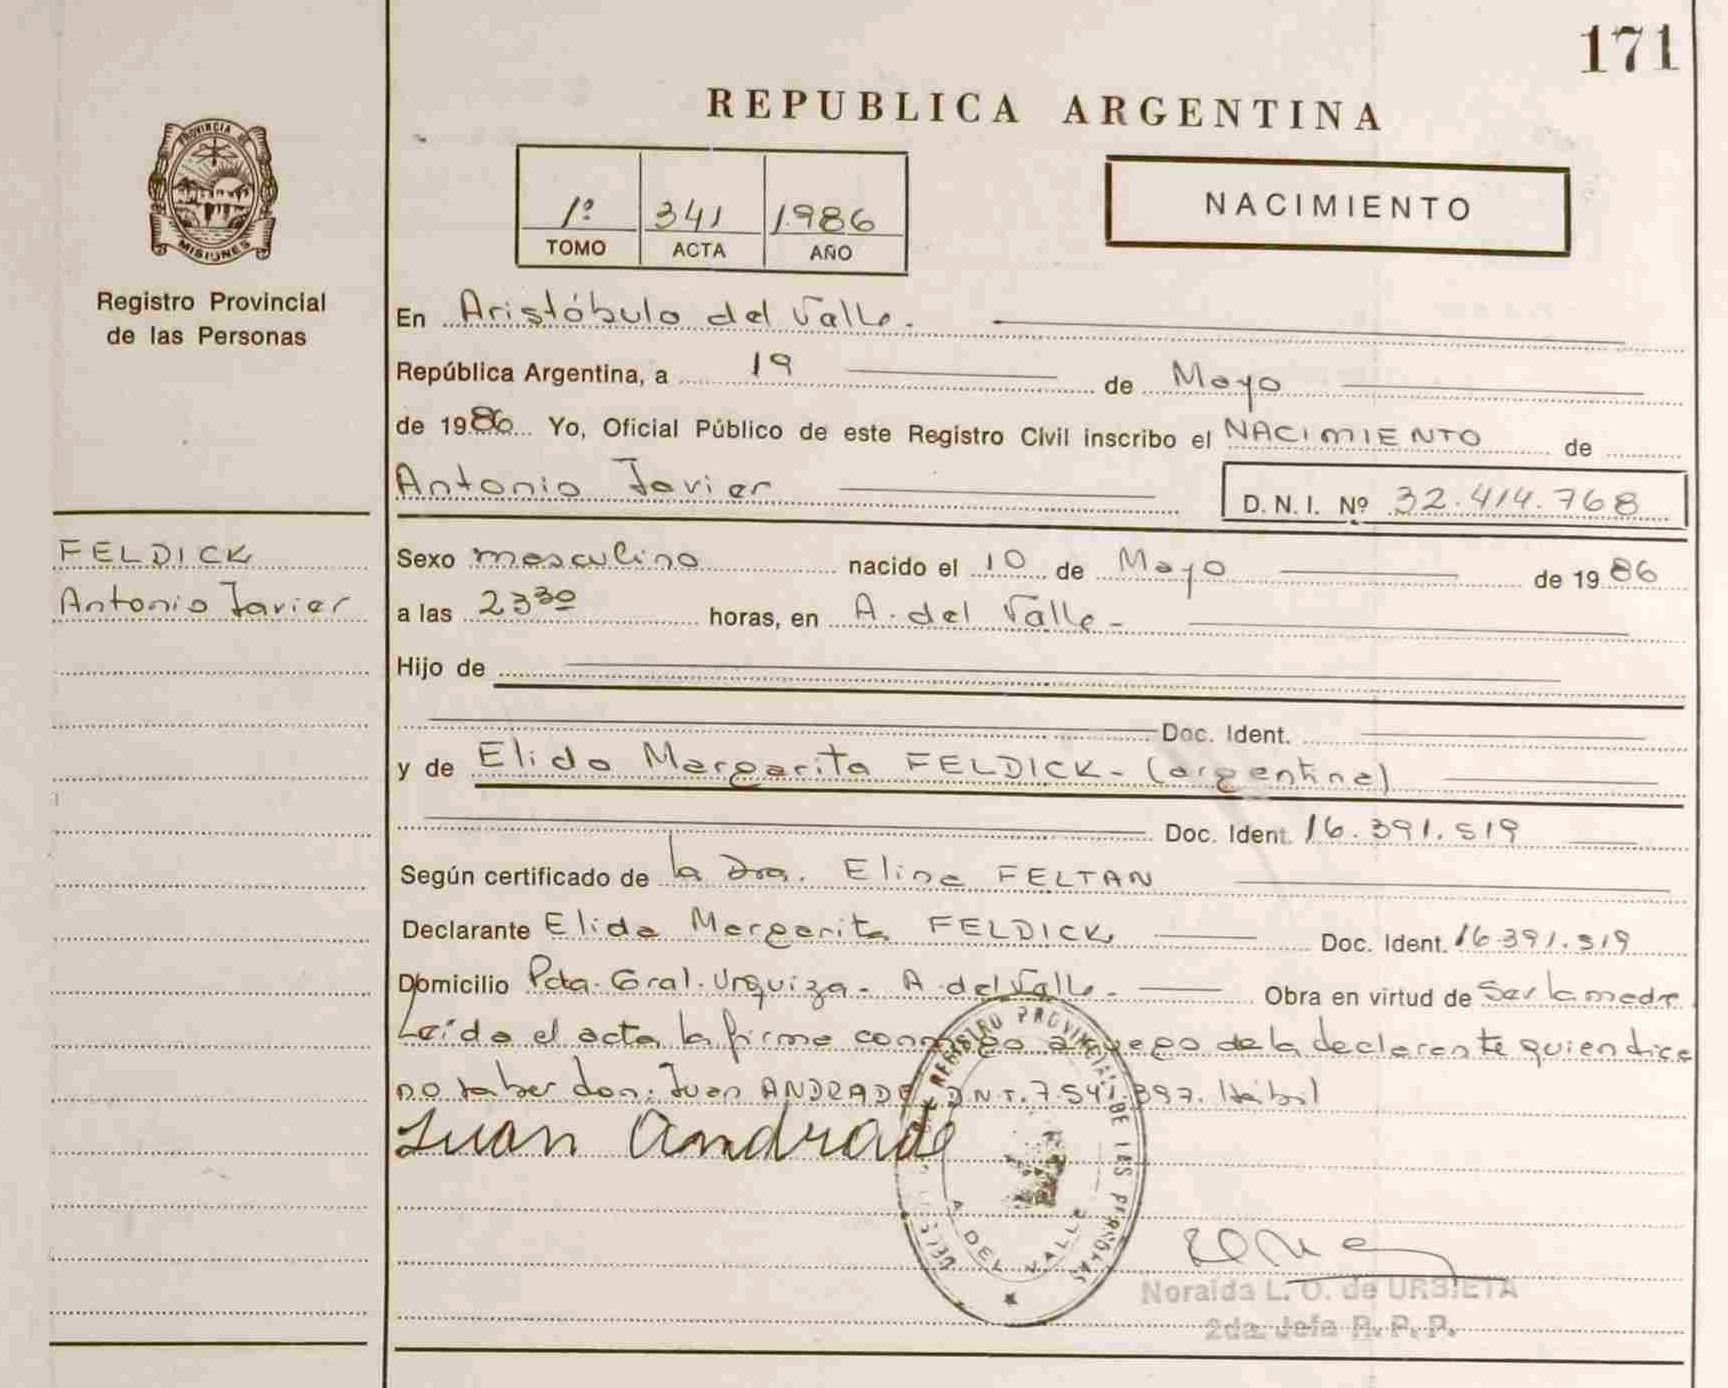 171
REPUBLICA ARGENTINA
PROVINCIA DE
MISIONES
Registro Provincial
de las Personas
1º 341 1.986
TOMO ACTA AÑO
NACIMIENTO
En Aristóbulo del Valle.
República Argentina, a 19 de Mayo
de 1986 Yo, Oficial Público de este Registro Civil inscribo el NACIMIENTO de
Antonio Javier
D. N. I. Nº 32.414.768
FELDICK
Antonio Javier
Sexo masculino nacido el 10 de Mayo de 1986
a las 23 30 horas, en A. del Valle -
Hijo de
Doc. Ident.
y de Elida Margarita FELDICK - (argentina)
Doc. Ident. 16.391.519
Según certificado de la Dra. Elina FELTAN
Declarante Elida Margarita FELDICK Doc. Ident. 16.391.519
Domicilio Pda. Gral. Urquiza - A. del Valle - Obra en virtud de Ser la madre
Leída el acta la firma conmigo a ruego de la declarante quien dice
no saber don: Juan ANDRADE D.N.I. 7.541.397. Hábil
Juan Andrade
REGISTRO PROVINCIAL DE LAS PERSONAS
A. DEL VALLE
MISIONES
Noraida L. O. de URBIETA
2da. Jefa R. P. P.